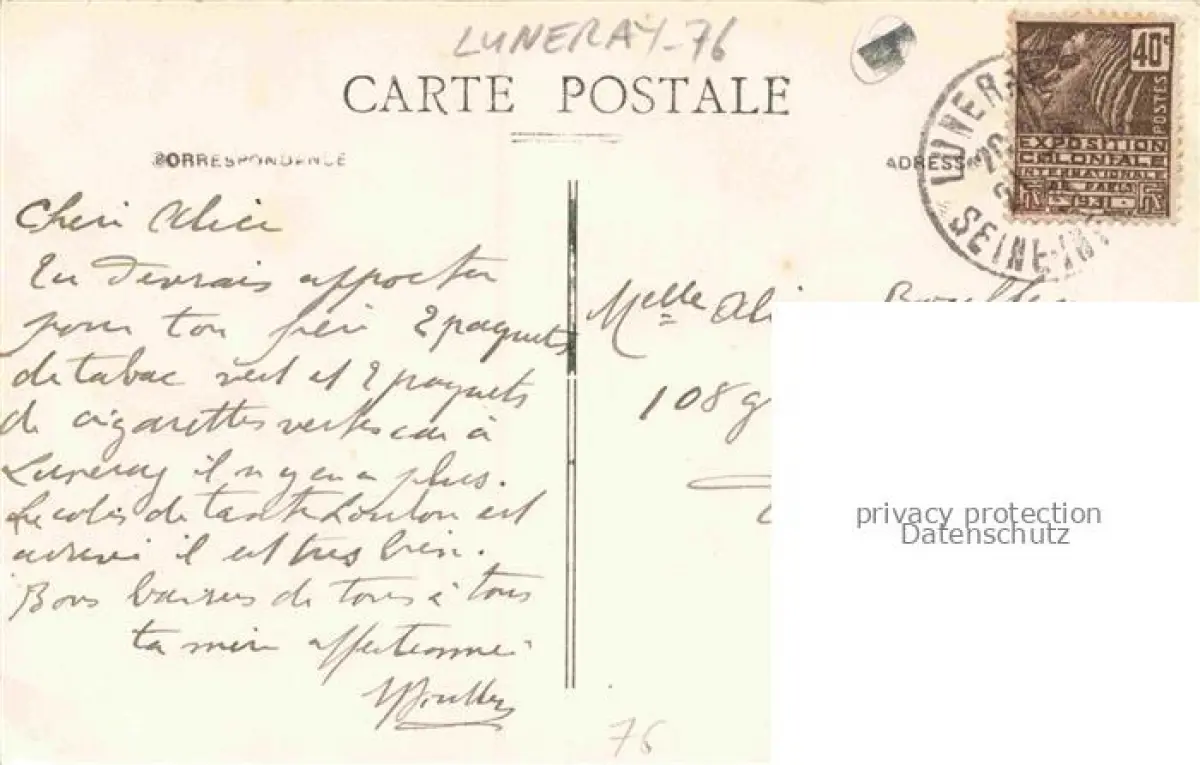 LUNERAY-76
CARTE POSTALE
CORRESPONDENCE
ADRESSE
40c
POSTES
EXPOSITION
COLONIALE
INTERNATIONALE
DE PARIS
1931
LUNERAY
SEINE-INF
Cheri Alice
Tu devrais apporter
pour ton frère 2 paquets
de tabac vert et 2 paquets
de cigarettes vertes car à
Luneray il n'y en a plus.
Le colis de tante Loulou est
arrivé il est très bien.
Bons baisers de tous à tous
ta mère affectionnée
Melle Ali
108 g
privacy protection
Datenschutz
76